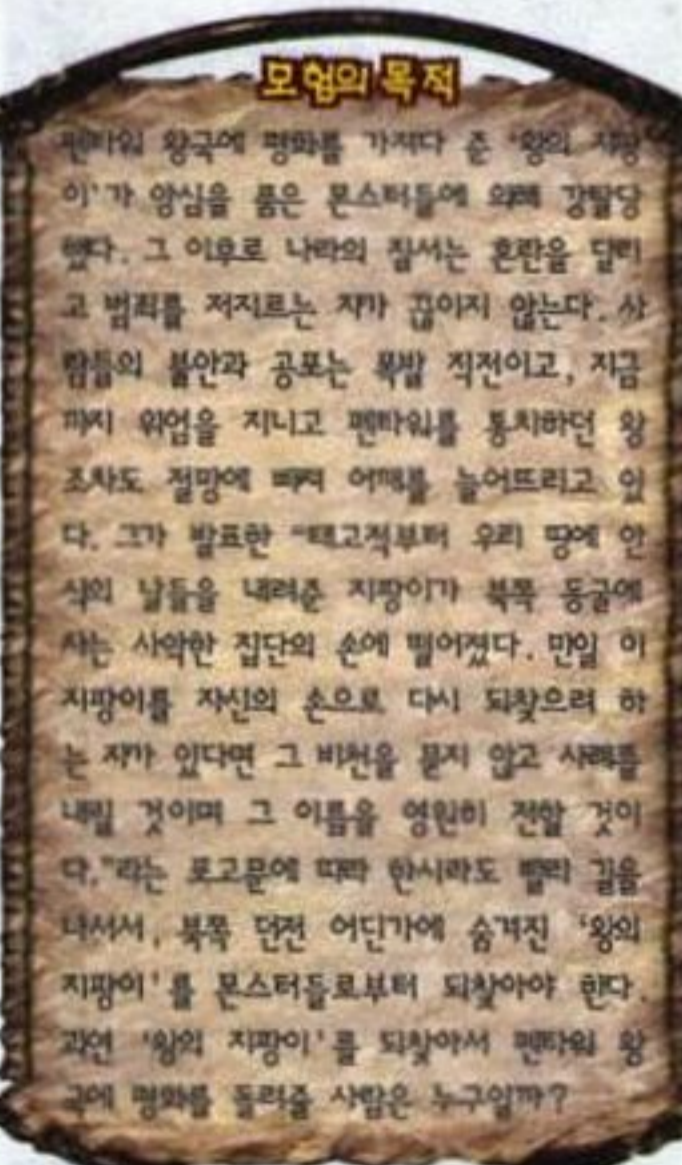 모험의 목적
펜타워 왕국에 평화를 가져다 준 '왕의 지팡
이'가 앙심을 품은 몬스터들에 의해 강탈당
했다. 그 이후로 나라의 질서는 혼란을 달리
고 범죄를 저지르는 자가 끊이지 않는다. 사
람들의 불안과 공포는 폭발 직전이고, 지금
까지 위엄을 지니고 펜타워를 통치하던 왕
조차도 절망에 빠져 어깨를 늘어뜨리고 있
다. 그가 발표한 "태고적부터 우리 땅에 안
식의 날들을 내려준 지팡이가 북쪽 동굴에
사는 사악한 집단의 손에 떨어졌다. 만일 이
지팡이를 자신의 손으로 다시 되찾으려 하
는 자가 있다면 그 비천을 묻지 않고 사례를
내릴 것이며 그 이름을 영원히 전할 것이
다."라는 포고문에 따라 한시라도 빨리 길을
나서서, 북쪽 던전 어딘가에 숨겨진 '왕의
지팡이'를 몬스터들로부터 되찾아야 한다.
과연 '왕의 지팡이'를 되찾아서 펜타워 왕
국에 평화를 돌려줄 사람은 누구일까?